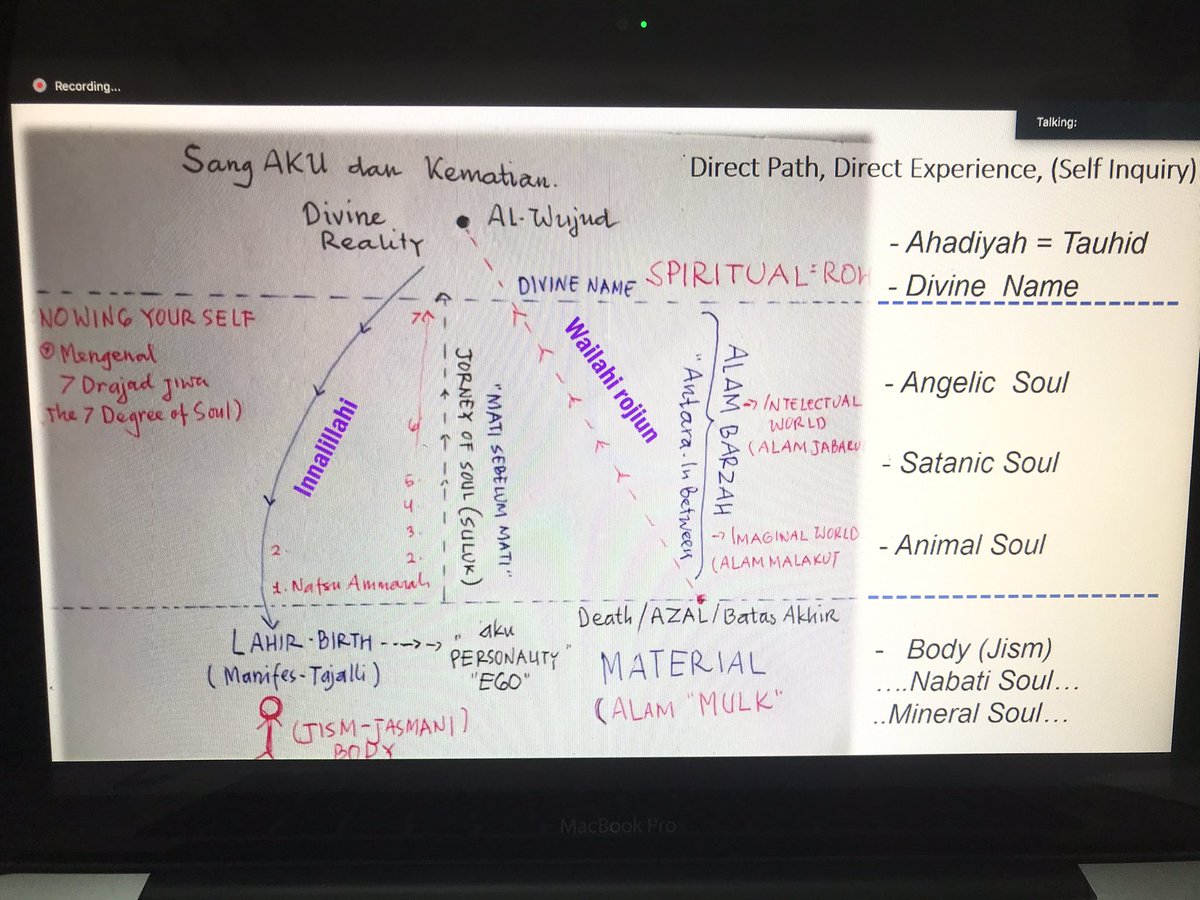 Recording...
Talking:
Sang AKU dan Kematian.
Direct Path, Direct Experience, (Self Inquiry)
Divine
Reality
AL-Wujud
- Ahadiyah = Tauhid
- Divine Name
DIVINE NAME
SPIRITUAL=ROH
NOWING YOUR SELF
Mengenal
7 Drajad jiwa
(the 7 Degree of Soul)
Innalillahi
7
6
5.
4.
3.
2.
2.
1. Nafsu Ammarah
JORNEY OF SOUL (SULUK)
"MATI SEBELUM MATI"
Wailahi rojiun
"Antara-In between
ALAM BARZAH
→ INTELECTUAL
WORLD
(ALAM JABARU
→ IMAGINAL WORLD
(ALAM MALAKUT
- Angelic Soul
- Satanic Soul
- Animal Soul
LAHIR-BIRTH
(Manifes-Tajalli)
"aku
PERSONALITY"
"EGO"
Death/AZAL/Batas Akhir
MATERIAL
(ALAM "MULK"
(JISM-JASMANI)
BODY
- Body (Jism)
....Nabati Soul...
..Mineral Soul...
MacBook Pro